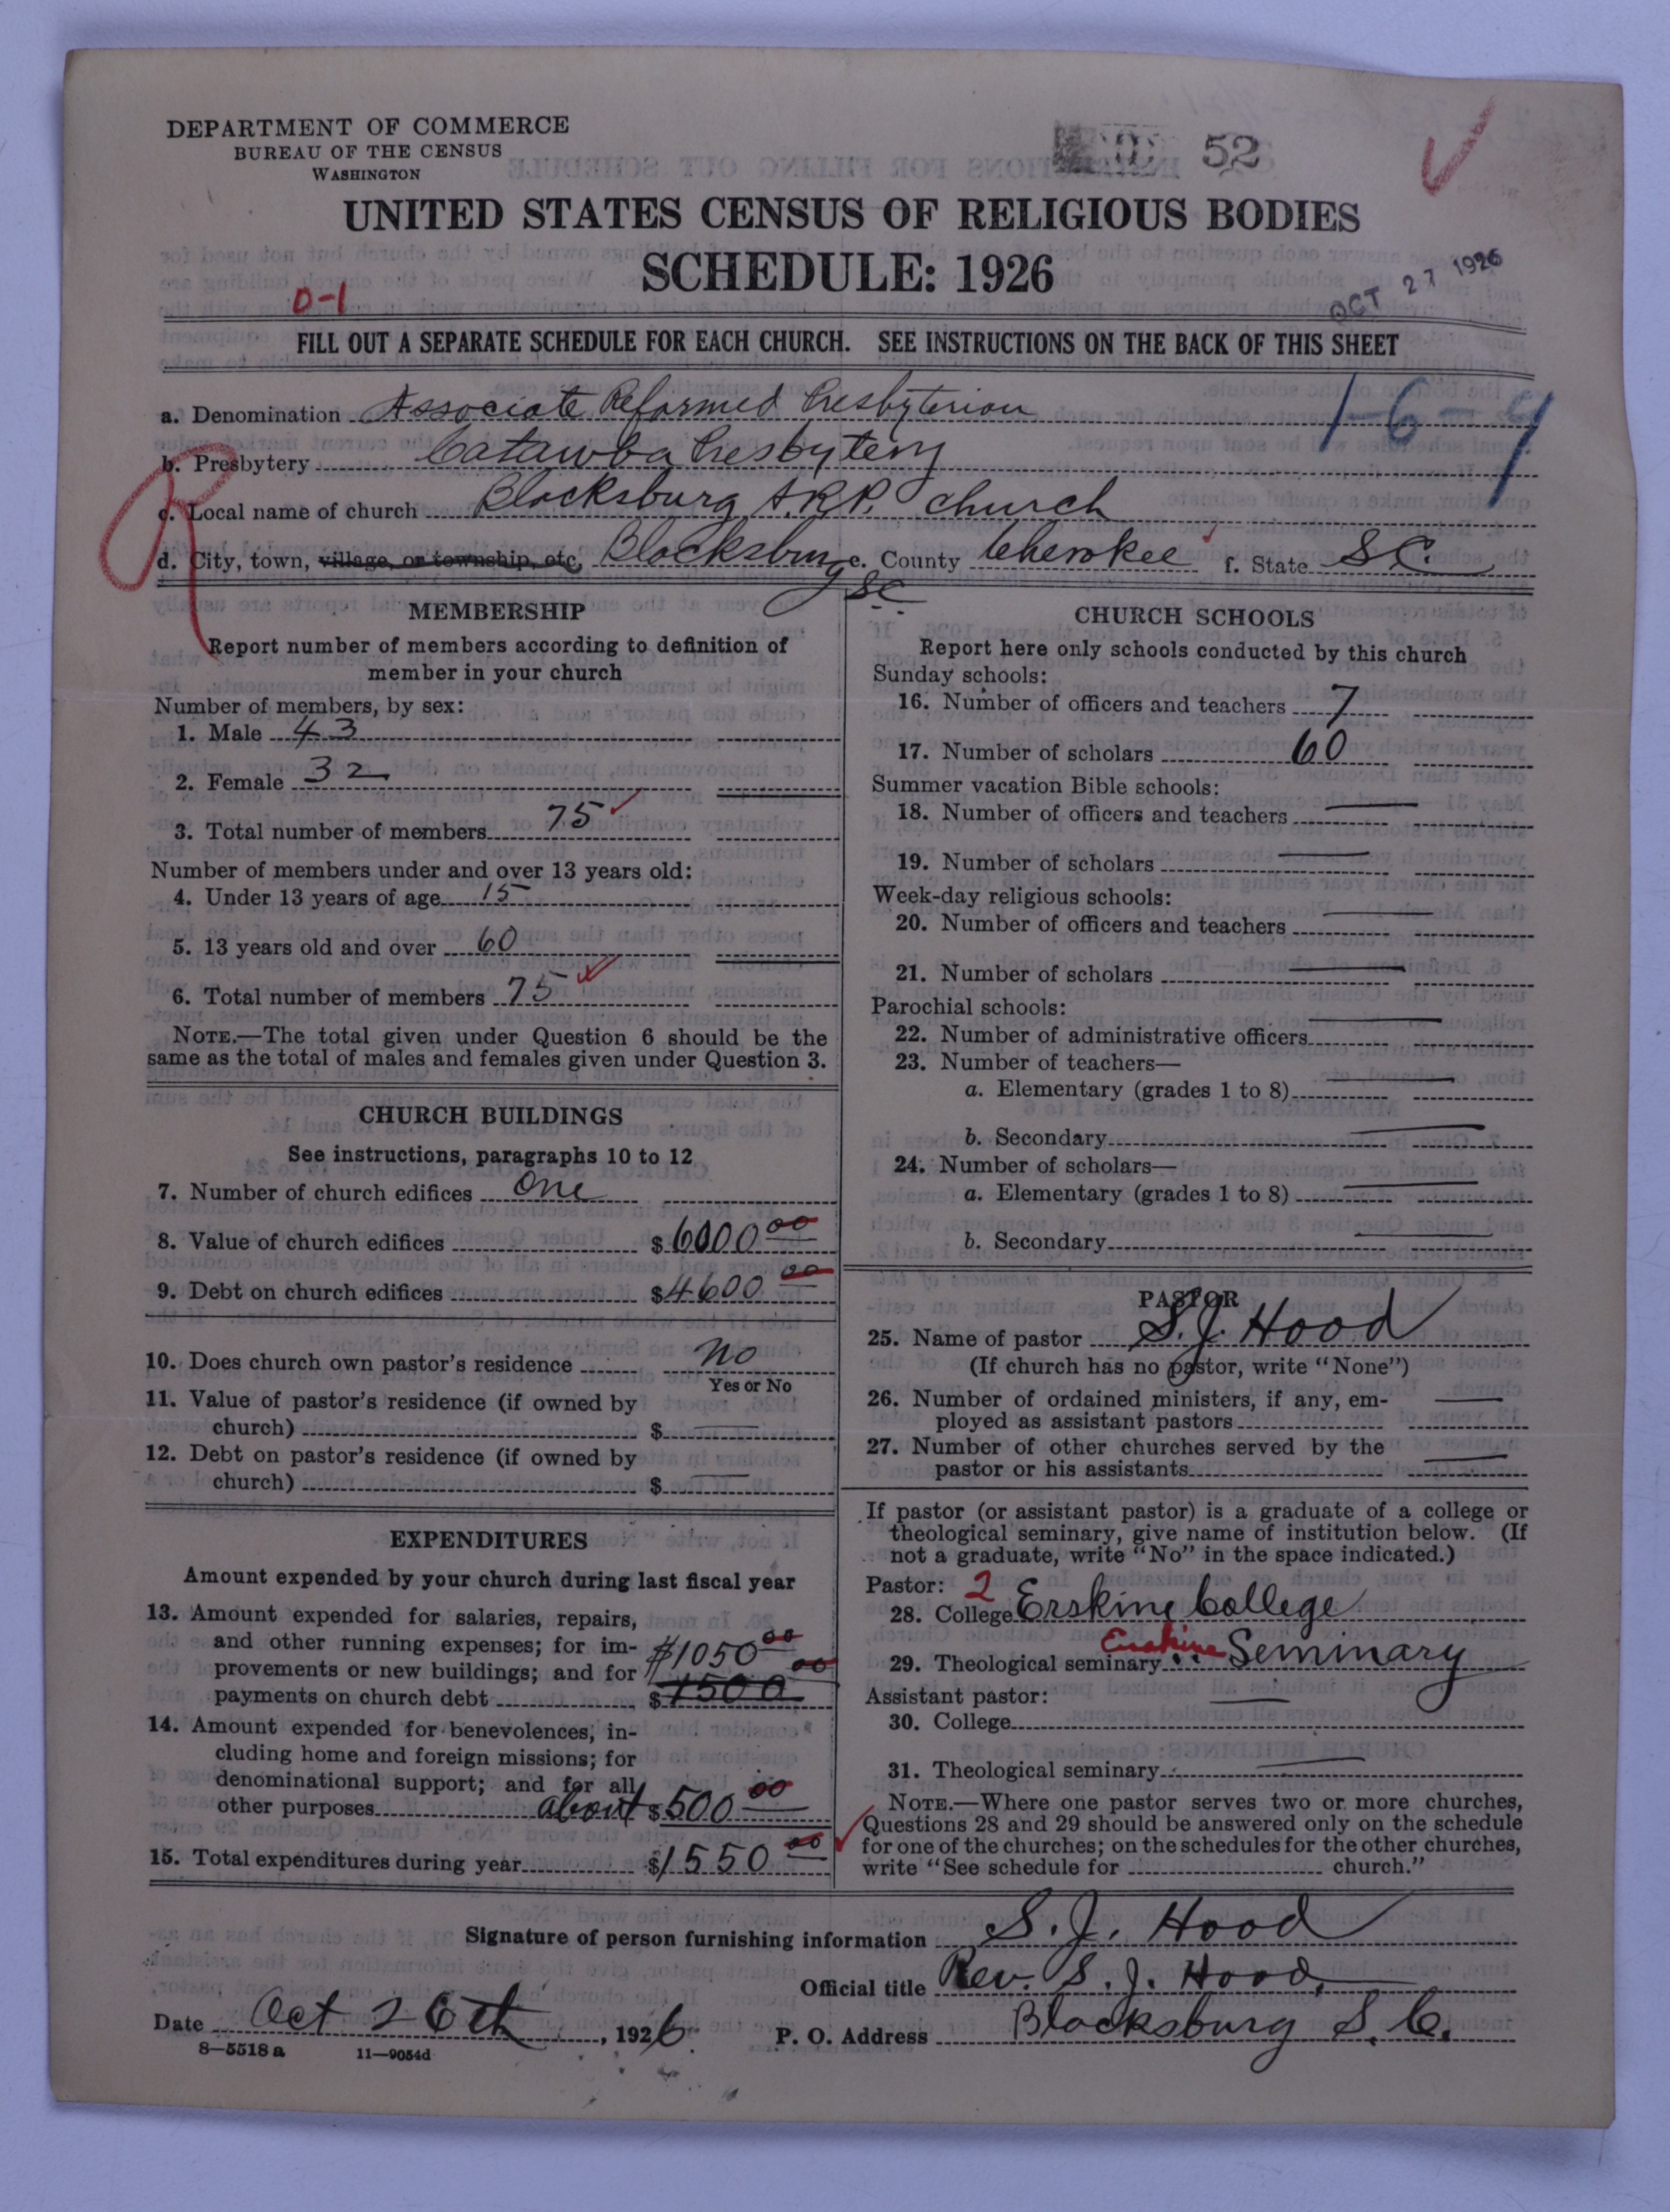 DEPARTMENT OF COMMERCE
BUREAU OF THE CENSUS
WASHINGTON
52
UNITED STATES CENSUS OF RELIGIOUS BODIES
SCHEDULE: 1926
OCT 27 1926
0-1
FILL OUT A SEPARATE SCHEDULE FOR EACH CHURCH. SEE INSTRUCTIONS ON THE BACK OF THIS SHEET
a. Denomination Associate Reformed Presbyterian
1-6-9
b. Presbytery Catawba Presbytery
R
c. Local name of church Blacksburg A.R.P. church
d. City, town, village, or township, etc. Blacksburg SC e. County Cherokee f. State S.C.
MEMBERSHIP
Report number of members according to definition of
member in your church
Number of members, by sex:
1. Male 43
2. Female 32
3. Total number of members 75
Number of members under and over 13 years old:
4. Under 13 years of age 15
5. 13 years old and over 60
6. Total number of members 75
NOTE.—The total given under Question 6 should be the
same as the total of males and females given under Question 3.
CHURCH BUILDINGS
See instructions, paragraphs 10 to 12
7. Number of church edifices One
8. Value of church edifices $6000 00
9. Debt on church edifices $4600 00
10. Does church own pastor's residence No
Yes or No
11. Value of pastor's residence (if owned by
church) $ —
12. Debt on pastor's residence (if owned by
church) $ —
EXPENDITURES
Amount expended by your church during last fiscal year
13. Amount expended for salaries, repairs,
and other running expenses; for im-
provements or new buildings; and for $1050 00
payments on church debt $1500 00
14. Amount expended for benevolences, in-
cluding home and foreign missions; for
denominational support; and for all
other purposes about $500 00
15. Total expenditures during year $1550 00
CHURCH SCHOOLS
Report here only schools conducted by this church
Sunday schools:
16. Number of officers and teachers 7
17. Number of scholars 60
Summer vacation Bible schools:
18. Number of officers and teachers —
19. Number of scholars —
Week-day religious schools:
20. Number of officers and teachers —
21. Number of scholars —
Parochial schools:
22. Number of administrative officers —
23. Number of teachers—
a. Elementary (grades 1 to 8) —
b. Secondary —
24. Number of scholars—
a. Elementary (grades 1 to 8) —
b. Secondary —
PASTOR
25. Name of pastor S. J. Hood
(If church has no pastor, write "None")
26. Number of ordained ministers, if any, em-
ployed as assistant pastors —
27. Number of other churches served by the
pastor or his assistants —
If pastor (or assistant pastor) is a graduate of a college or
theological seminary, give name of institution below. (If
not a graduate, write "No" in the space indicated.)
Pastor: 2
28. College Erskine College
29. Theological seminary Erskine " Seminary
Assistant pastor:
30. College —
31. Theological seminary —
NOTE.—Where one pastor serves two or more churches,
Questions 28 and 29 should be answered only on the schedule
for one of the churches; on the schedules for the other churches,
write "See schedule for church."
Signature of person furnishing information S. J. Hood
Official title Rev. S. J. Hood,
Date Oct 26th, 1926. P. O. Address Blacksburg S. C.
8—5518 a 11—9054d